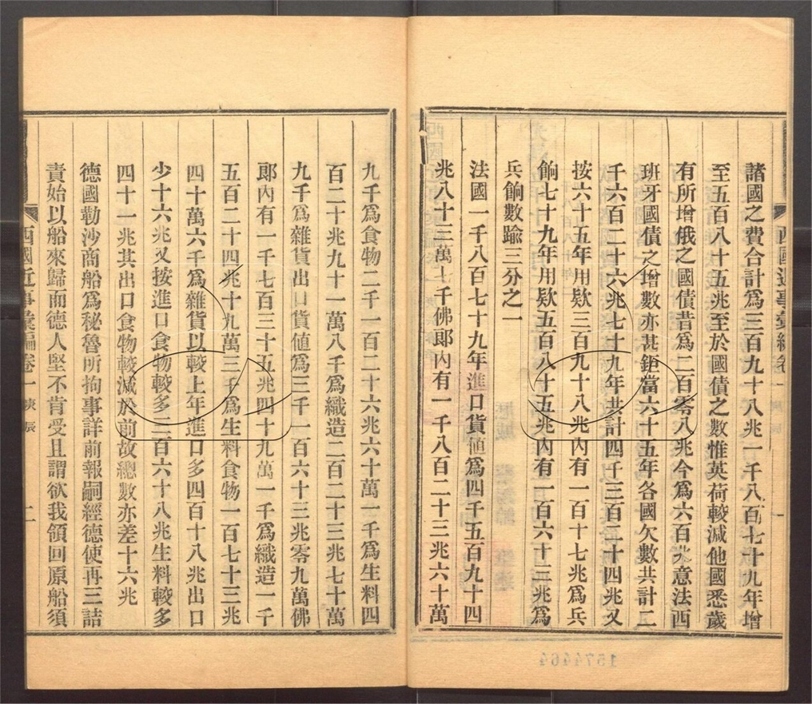 諸國之費合計爲三百九十八兆一千八百七十九年增
至五百八十五兆至於國債之數惟英荷較減他國悉歲
有所增俄之國債昔爲二百零八兆今爲六百兆意法西
班牙國債之增數亦甚鉅當六十五年各國欠數共計二
千六百二十六兆七十九年共計四千三百二十四兆又
按六十五年用欵三百九十八兆內有一百十七兆爲兵
餉七十九年用欵五百八十五兆內有一百六十三兆爲
兵餉數踰三分之一
法國一千八百七十九年進口貨値爲四千五百九十四
兆八十三萬七千佛郎內有一千八百二十三兆六十萬
西國近事彙編卷一 庚辰 二
九千爲食物二千一百二十六兆六十萬一千爲生料四
百二十兆九十一萬八千爲織造二百二十三兆七十萬
九千爲雜貨出口貨値爲三千一百六十三兆零九萬佛
郎內有一千七百三十五兆四十九萬一千爲織造一千
五百二十四兆十九萬三千爲生料食物一百七十三兆
四十萬六千爲雜貨以較上年進口多四百十八兆出口
少十六兆又按進口食物較多三百六十八兆生料較多
四十一兆其出口食物較減於前故總數亦差十六兆
德國勒沙商船爲秘魯所拘事詳前報嗣經德使再三詰
責始以船來歸而德人堅不肯受且謂欲我領回原船須
西國近事彙編卷一 庚辰 二
1574464